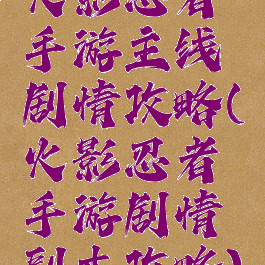 火影忍者
手游主线
剧情攻略(
火影忍者
手游剧情
副本攻略)